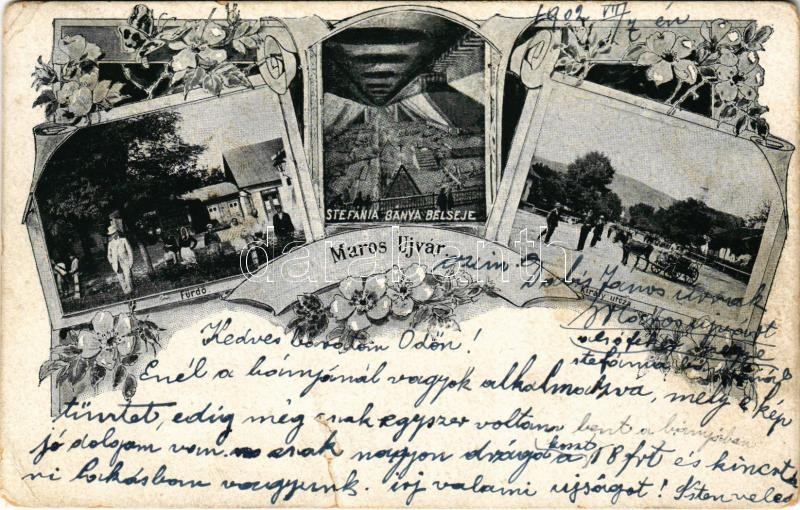 1902 VII/7 én
STEFÁNIA BÁNYA BELSEJE
Maros Ujvár
Fürdő
Károly utcza
czim
János urnak
Marosujvárt
Stefánia
Kedves barátom Ödön!
Enél a bányánál vagyok alkalmazva, mely e kép
tüntet, edig még csak egyszer voltam bent a bányában
jó dolgom van csak nagyon drága a koszt 18 frt és kincst
ni lakásban vagyunk. irj valami ujságot! Isten veled
darabanth.com